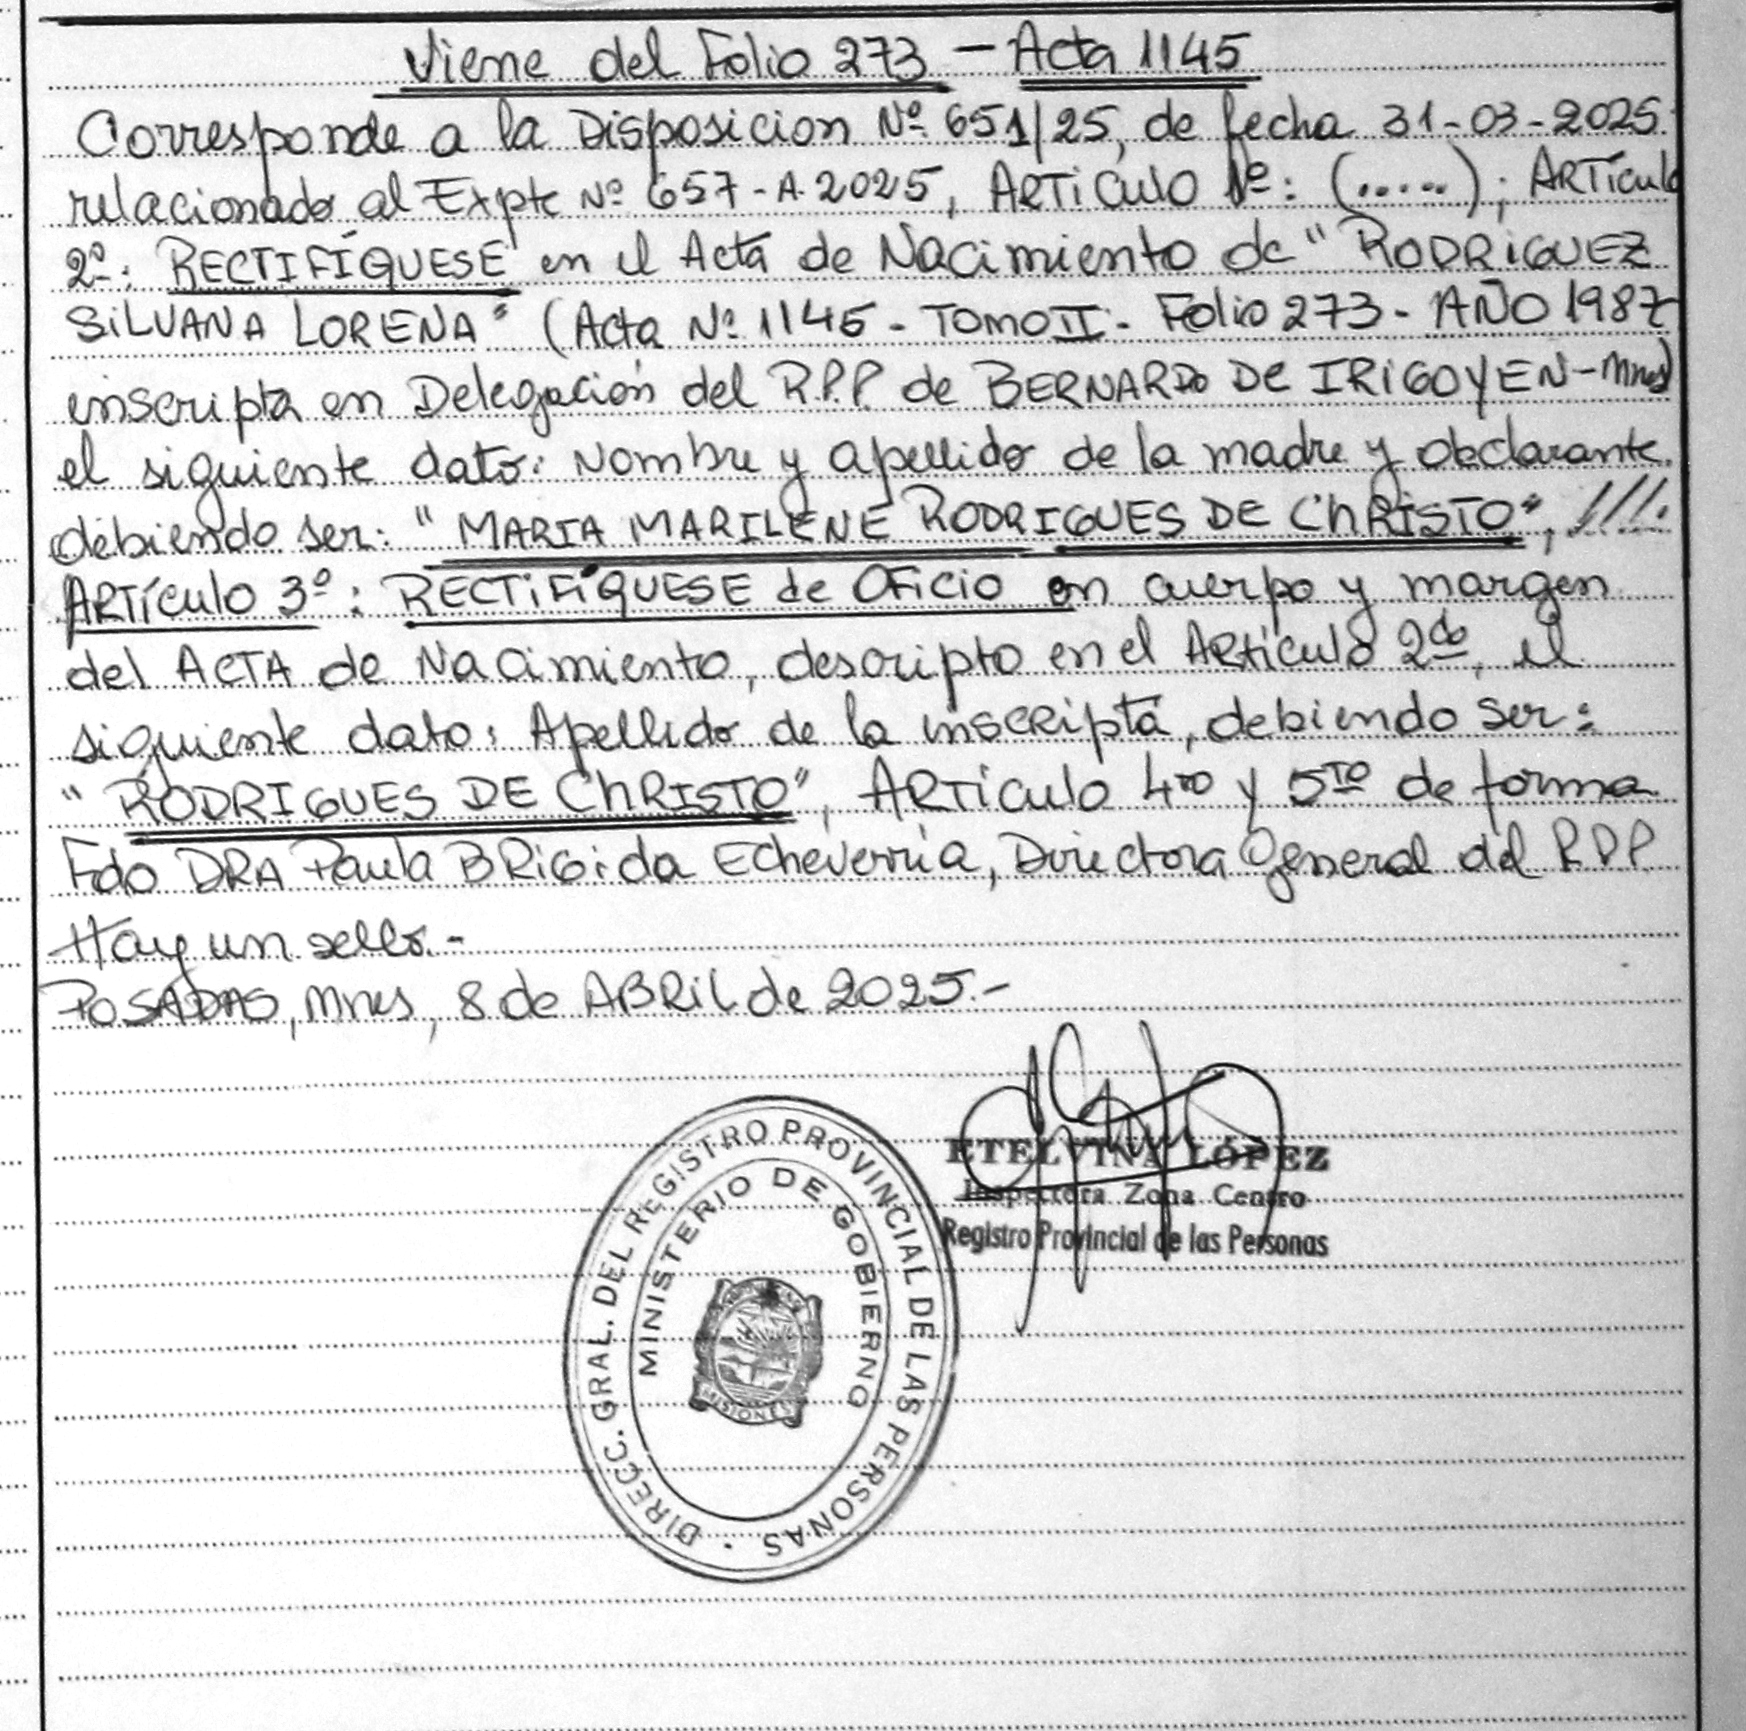 Viene del Folio 273 - Acta 1145
Corresponde a la Disposicion Nº 651/25, de fecha 31-03-2025.
relacionado al Expte Nº 657-A-2025, ARTiCulo 1º: (......); ARTículo
2º: RECTIFÍQUESE en el Acta de Nacimiento de "RODRiGUEZ
SiLVANA LORENA" (Acta Nº 1145 - TOMO II - Folio 273 - AÑO 1987
inscripta en Delegación del R.P.P. de BERNARDO De IRiGOYEN-Mnes)
el siguiente dato: Nombre y apellido de la madre y declarante,
debiendo ser: "MARIA MARILENE RODRIGUES DE ChRISTO", ////.
ARTículo 3º: RECTiFíQUESE de OFicio en cuerpo y margen
del ACTA de Nacimiento, descripto en el ARtículo 2do, el
siguiente dato: Apellido de la inscripta, debiendo ser:
"RODRIGUES DE ChRISTO", ARTículo 4to y 5TO de forma
Fdo DRA Paula BRiGida Echeverría, Directora General del R.P.P.
Hay un sello.-
POSADAS, Mnes, 8 de ABRiL de 2025.-
ETELVINA LÓPEZ
Inspectora Zona Centro
Registro Provincial de las Personas
DIRECC. GRAL. DEL REGISTRO PROVINCIAL DE LAS PERSONAS
MINISTERIO DE GOBIERNO
MISIONES